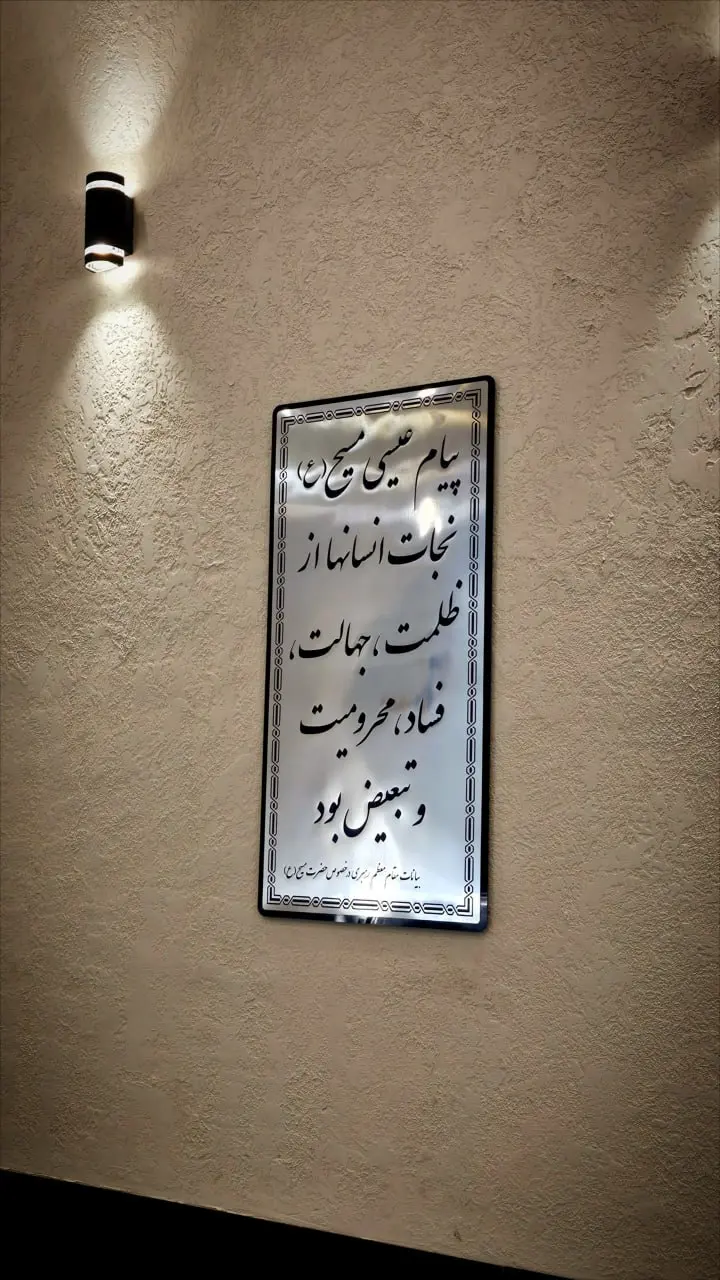 پیام عیسی مسیح (ع)
نجات انسانها از
ظلمت، جهالت،
فساد، محرومیت
و تبعیض بود
بیانات مقام معظم رهبری در خصوص حضرت مسیح (ع)